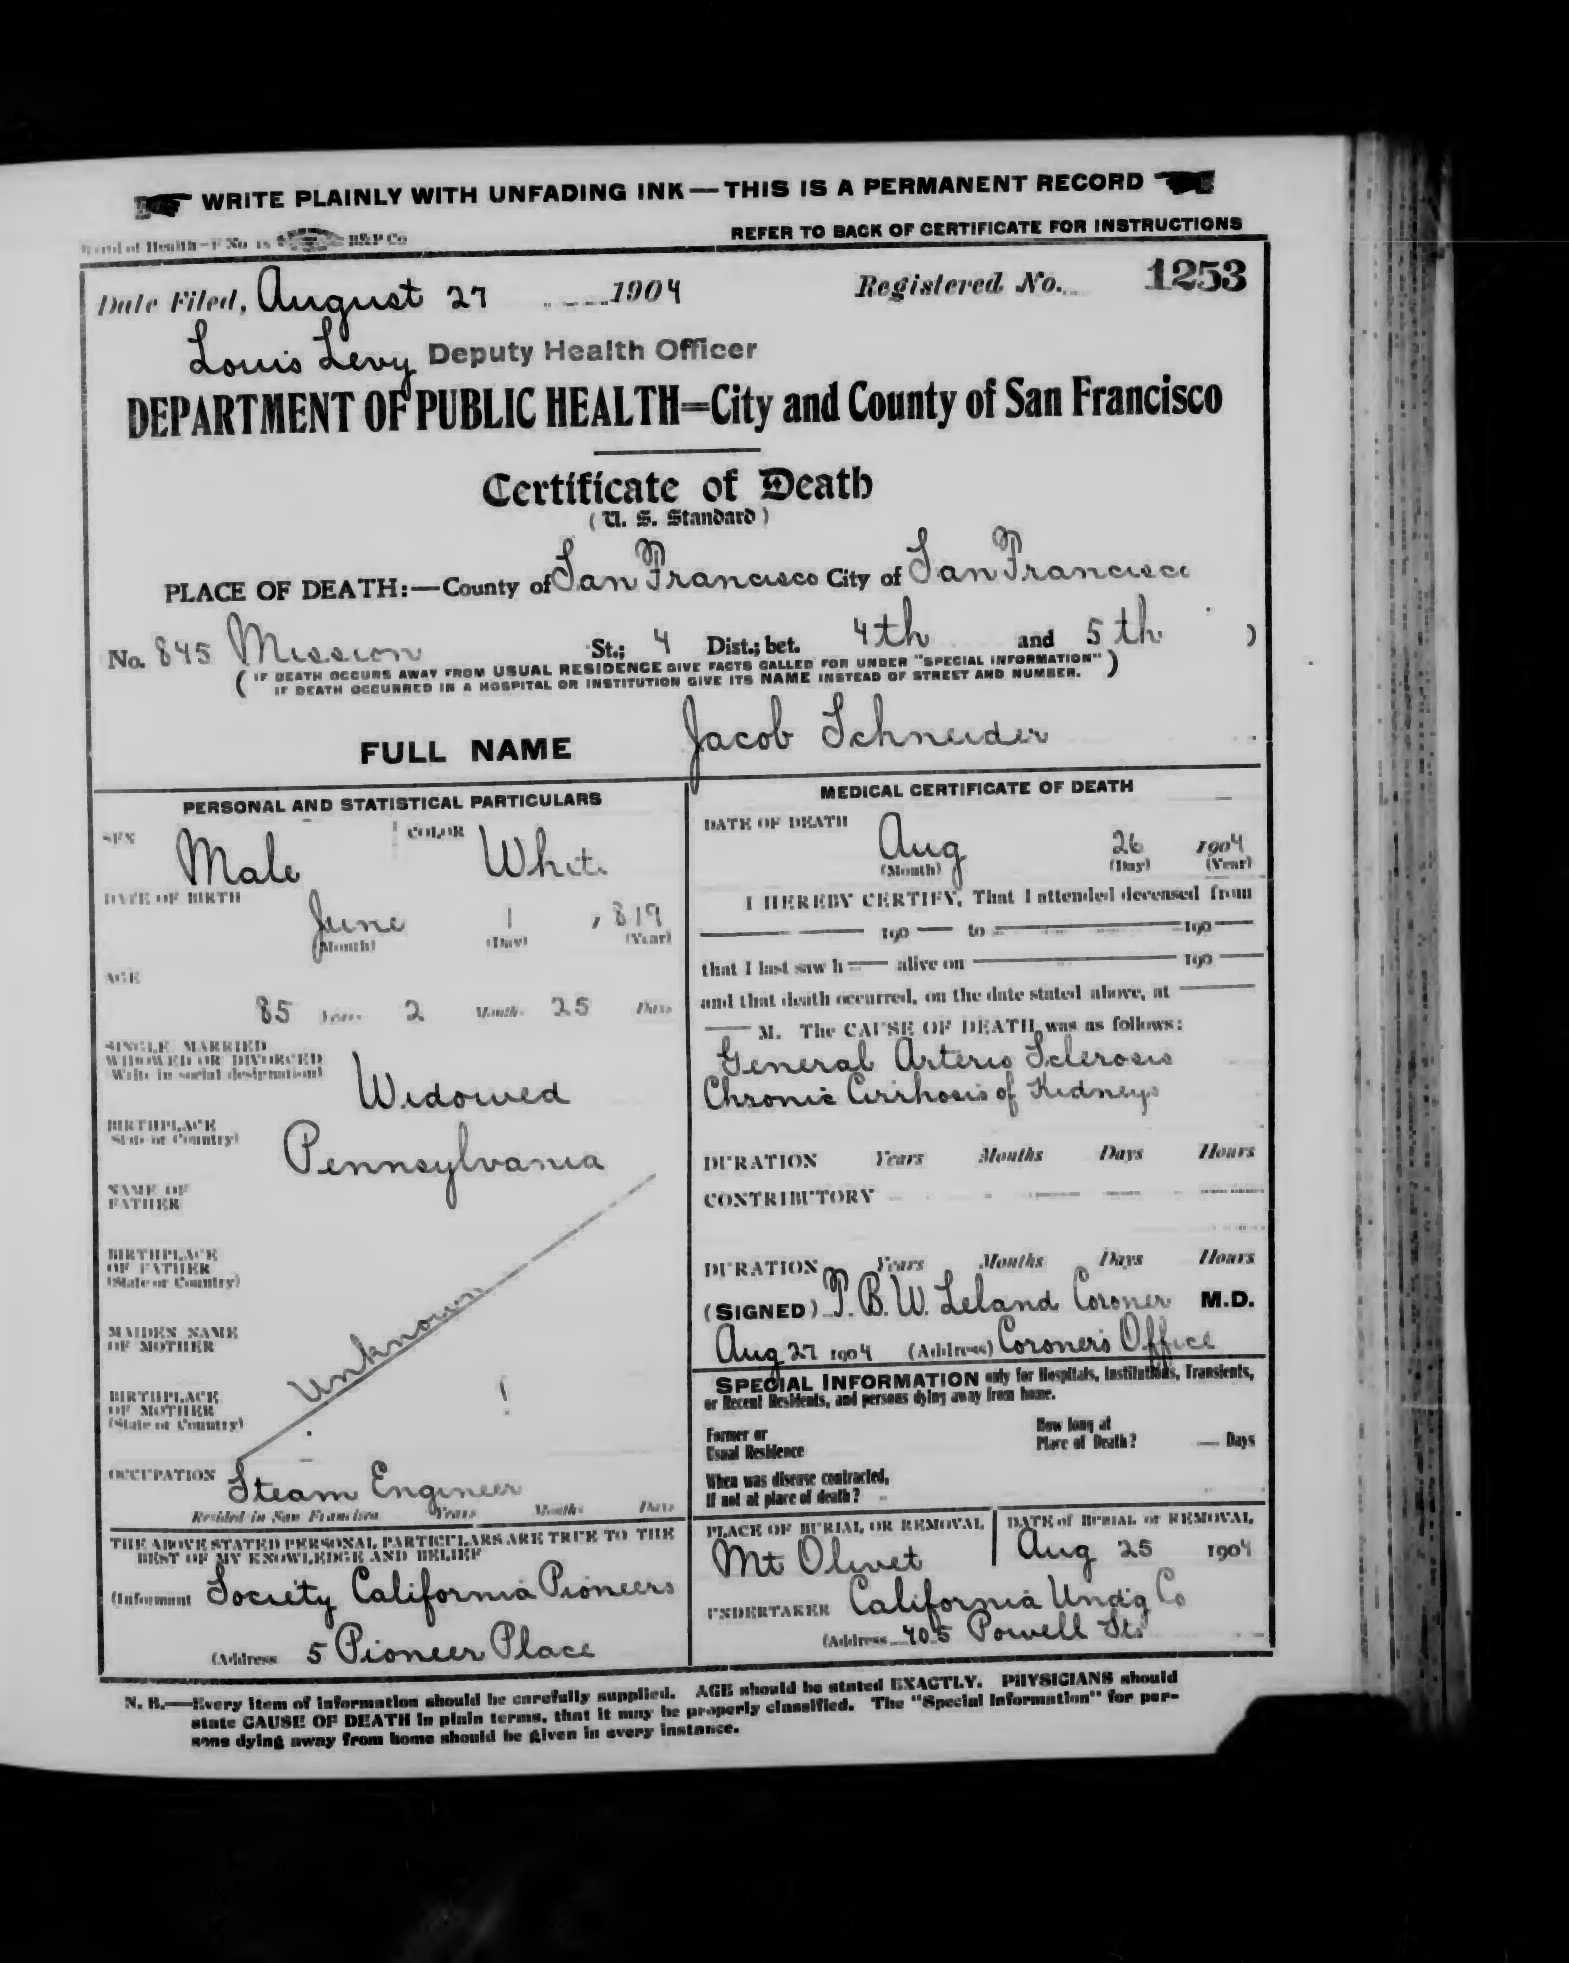 WRITE PLAINLY WITH UNFADING INK—THIS IS A PERMANENT RECORD
Board of Health—F No 18 H&P Co
REFER TO BACK OF CERTIFICATE FOR INSTRUCTIONS
Date Filed, August 27 1904 Registered No. 1253
Louis Levy Deputy Health Officer
DEPARTMENT OF PUBLIC HEALTH=City and County of San Francisco
Certificate of Death
(U. S. Standard)
PLACE OF DEATH:—County of San Francisco City of San Francisco
No. 845 Mission St.; 4 Dist.; bet. 4th and 5th )
( IF DEATH OCCURS AWAY FROM USUAL RESIDENCE GIVE FACTS CALLED FOR UNDER "SPECIAL INFORMATION" )
IF DEATH OCCURRED IN A HOSPITAL OR INSTITUTION GIVE ITS NAME INSTEAD OF STREET AND NUMBER.
FULL NAME Jacob Schneider
PERSONAL AND STATISTICAL PARTICULARS
SEX Male COLOR White
DATE OF BIRTH
June 1 , 819
(Month) (Day) (Year)
AGE
85 Years 2 Months 25 Days
SINGLE MARRIED
WIDOWED OR DIVORCED
(Write in social designation)
Widowed
BIRTHPLACE
(State or Country)
Pennsylvania
NAME OF
FATHER
BIRTHPLACE
OF FATHER
(State or Country)
MAIDEN NAME
OF MOTHER
Unknown
BIRTHPLACE
OF MOTHER
(State or Country)
OCCUPATION Steam Engineer
Resided in San Francisco Years Months Days
THE ABOVE STATED PERSONAL PARTICULARS ARE TRUE TO THE
BEST OF MY KNOWLEDGE AND BELIEF
(Informant Society California Pioneers
(Address 5 Pioneer Place
MEDICAL CERTIFICATE OF DEATH
DATE OF DEATH
Aug 26 1904
(Month) (Day) (Year)
I HEREBY CERTIFY, That I attended deceased from
190 to 190
that I last saw h alive on 190
and that death occurred, on the date stated above, at
M. The CAUSE OF DEATH was as follows:
General Arterio Sclerosis
Chronic Cirrhosis of Kidneys
DURATION Years Months Days Hours
CONTRIBUTORY
DURATION Years Months Days Hours
(SIGNED) T. B. W. Leland Coroner M.D.
Aug 27 1904 (Address) Coroner's Office
SPECIAL INFORMATION only for Hospitals, Institutions, Transients,
or Recent Residents, and persons dying away from home.
Former or
Usual Residence
How long at
Place of Death? — Days
When was disease contracted,
If not at place of death?
PLACE OF BURIAL OR REMOVAL DATE of BURIAL or REMOVAL
Mt Olivet Aug 25 1904
UNDERTAKER California Undg Co
(Address 405 Powell St.
N. B.—Every item of information should be carefully supplied. AGE should be stated EXACTLY. PHYSICIANS should
state CAUSE OF DEATH in plain terms, that it may be properly classified. The "Special Information" for per-
sons dying away from home should be given in every instance.